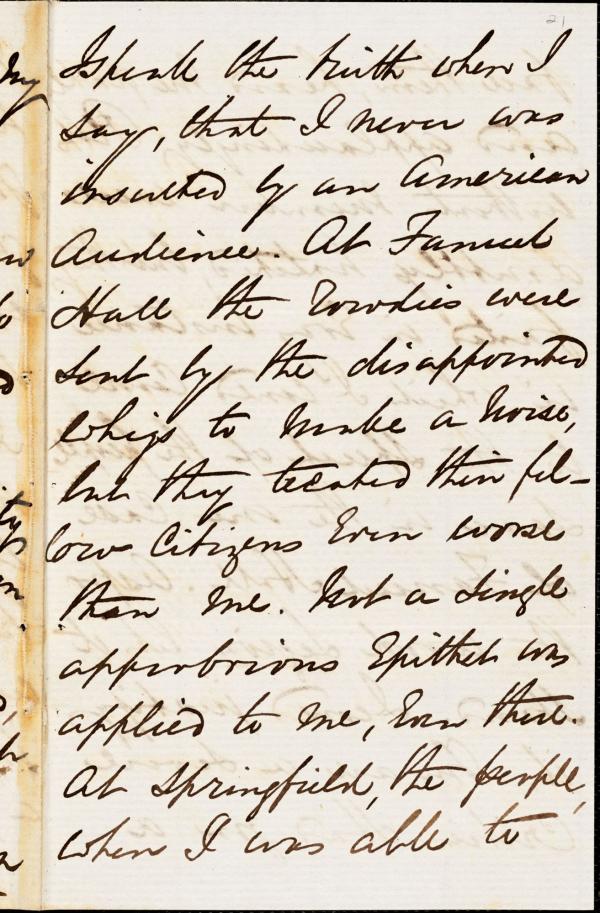 21
I speak the truth when I
say, that I never was
insulted by an American
Audience. At Fanueil
Hall the rowdies were
sent by the disappointed
whigs to make a noise,
but they treated their fel-
low Citizens even worse
than me. Not a single
opprobrious Epithet was
applied to me, even there.
At Springfield, the people,
when I was able to